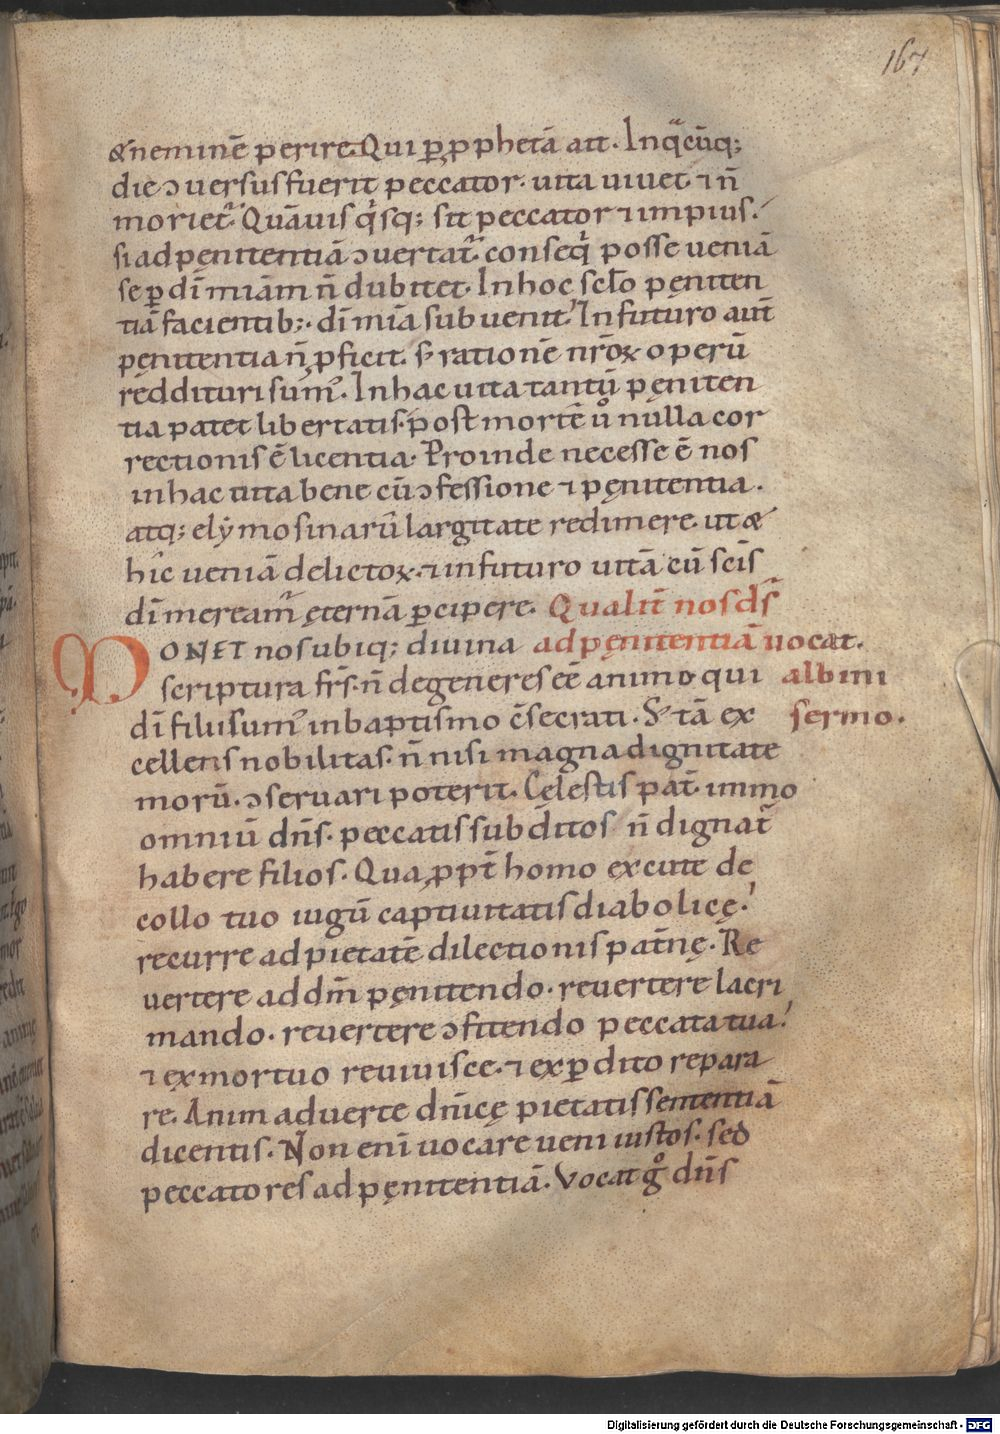 167
& neminē perire. Qui ꝑ ꝓphetā ait. In q̄cūq;
die ɔuersus fuerit peccator. uita uiuet. ⁊ n̄
moriet᷑. Quāuis q̇sq; sit peccator ⁊ impius.
si ad pęnitentiā ɔuertat᷑. conseq̇ posse ueniā
se ꝑ dī miām n̄ dubitet. In hoc sclo pęniten
tiā facientib;. dī mīa subuenit. In futuro aut̄
pęnitentia n̄ ꝓficit. sꝫ rationē nr̄oꝝ operū
reddituri sum᷒. In hac uita tantū pęniten
tia patet libertatis. post mortē ů nulla cor
rectionis ē licentia. Proinde necesse ē nos
in hac uita bene cū ɔfessione ⁊ pęnitentia.
atq; elymosinarū largitate redimere. ut &
hic ueniā delictoꝝ. ⁊ in futuro uitā cū scīs
dī meream᷑ ęternā ꝑcipere. Qualit̄ nos ds̄
MONET nos ubiq; diuina ad pęnitentiā uocat.
scriptura fr̄s. n̄ degeneres eē animo qui albini
dī filii sum᷒ in baptismo ɔ̄secrati. Sꝫ tā ex sermo.
cellens nobilitas. n̄ nisi magna dignitate
morū. ɔseruari poterit. Cęlestis pat̄. immo
omniū dn̄s. peccatis subditos n̄ dignat᷑
habere filios. Quaꝓpt̄ homo excute de
collo tuo iugū captiuitatis diabolicę.
recurre ad pietatē dilectionis pat̄nę. Re
uertere ad dm̄ pęnitendo. reuertere lacri
mando. reuertere ɔfitendo peccata tua.
⁊ ex mortuo reuiuisce. ⁊ ex ꝑdito repara
re. Anim aduerte dn̄icę pietatis sententiā
dicentis. Non enī uocare ueni iustos. sed
peccatores ad pęnitentiā. Vocat g̊ dn̄s
Digitalisierung gefördert durch die Deutsche Forschungsgemeinschaft - DFG